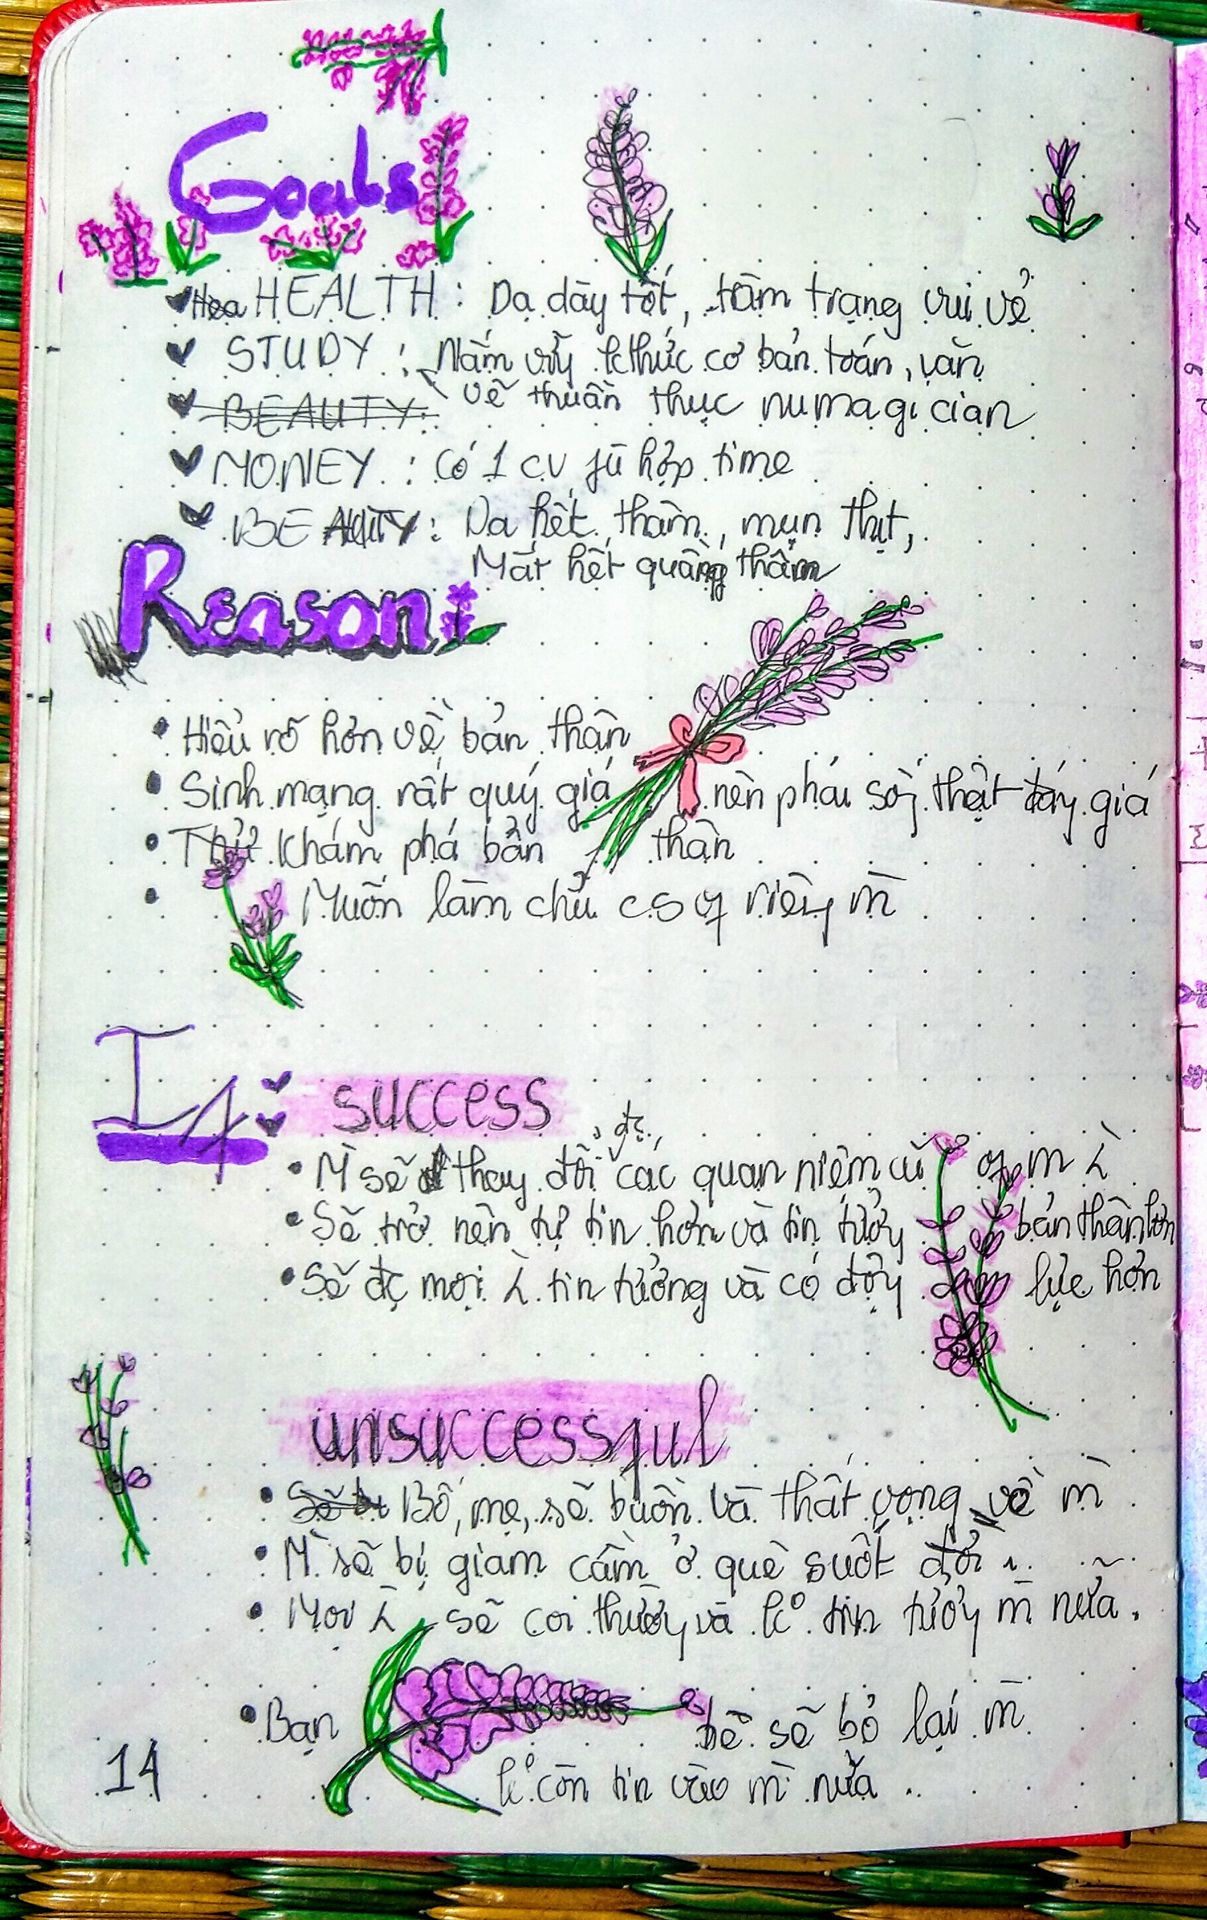 Goals
HEALTH: Dạ dày tốt, tâm trạng vui vẻ
STUDY: Nắm vữ kthức cơ bản toán, văn
BEAUTY: vẽ thuần thục numagician
MONEY: Có 1 cv fù hợp time
BEAUTY: Da hết thâm, mụn thịt,
Mắt hết quầng thâm
Reason
Hiểu rõ hơn về bản thân
Sinh mạng rất quý giá nên phải sốj thật đáy giá
Thử khám phá bản thân
Muốn làm chủ cs of riêy m̀
If: success
M̀ sẽ thay đổi đc các quan niệm cũ of m λ
Sẽ trở nên tự tin hơn và tin tưởy bản thân hơn
Sẽ đc mọi λ tin tưởng và có độy lực hơn
unsuccessful
Bố, mẹ, sẽ buồn và thất vọng về m̀
M̀ sẽ bị giam cầm ở quê suốt đời
Mọi λ sẽ coi thườy và k° tin tưởy m̀ nữa.
Bạn bè sẽ bỏ lại m̀
k° còn tin vào m̀ nữa ..
14